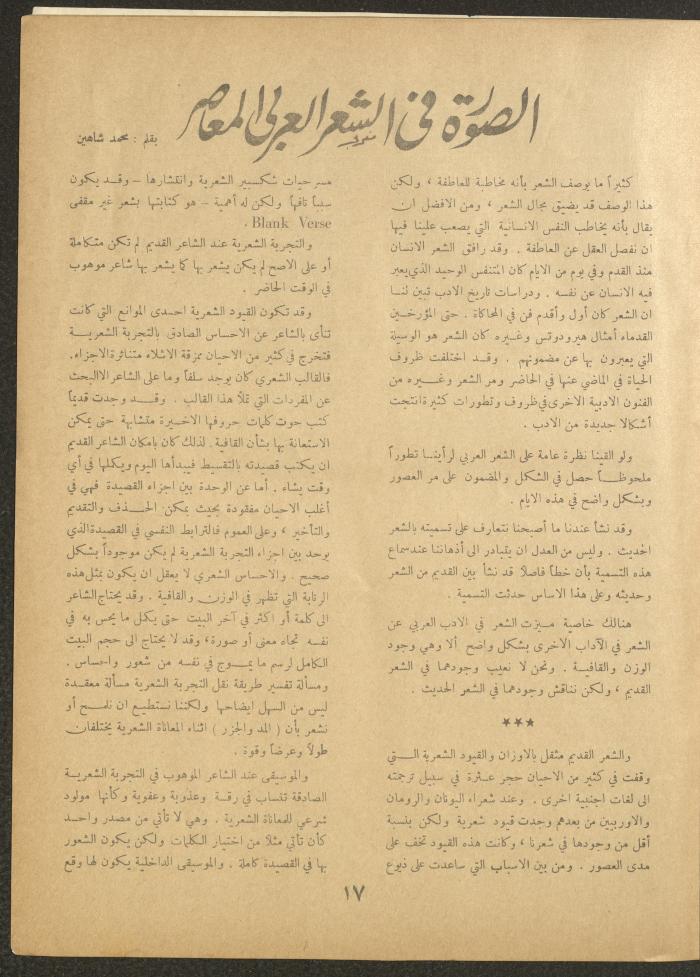 الصورة في الشعر العربي المعاصر
بقلم : محمد شاهين
كثيراً ما يوصف الشعر بأنه مخاطبة للعاطفة ، ولكن
هذا الوصف قد يضيق مجال الشعر ، ومن الافضل ان
يقال بأنه يخاطب النفس الانسانية التي يصعب علينا فيها
ان نفصل العقل عن العاطفة . وقد رافق الشعر الانسان
منذ القدم وفي يوم من الايام كان المتنفس الوحيد الذي يعبر
فيه الانسان عن نفسه . ودراسات تاريخ الادب تبين لنا
ان الشعر كان أول وأقدم فن في المحاكاة . حتى المؤرخين
القدماء أمثال هيرودوتس وغيره كان الشعر هو الوسيلة
التي يعبرون بها عن مضمونهم . وقد اختلفت ظروف
الحياة في الماضي عنها في الحاضر ومر الشعر وغيره من
الفنون الادبية الاخرى في ظروف وتطورات كثيرة انتجت
أشكالا جديدة من الادب .
ولو القينا نظرة عامة على الشعر العربي لرأينا تطوراً
ملحوظاً حصل في الشكل والمضمون على مر العصور
وبشكل واضح في هذه الايام .
وقد نشأ عندنا ما أصبحنا نتعارف على تسميته بالشعر
الحديث . وليس من العدل ان يتبادر الى أذهاننا عند سماع
هذه التسمية بأن خطاً فاصلا قد نشأ بين القديم من الشعر
وحديثه وعلى هذا الاساس حدثت التسمية .
هنالك خاصية ميزت الشعر في الادب العربي عن
الشعر في الآداب الأخرى بشكل واضح ألا وهي وجود
الوزن والقافية . ونحن لا نعيب وجودهما في الشعر
القديم ، ولكن نناقش وجودهما في الشعر الحديث .
***
والشعر القديم مثقل بالاوزان والقيود الشعرية التي
وقفت في كثير من الاحيان حجر عثرة في سبيل ترجمته
الى لغات اجنبية اخرى . وعند شعراء اليونان والرومان
والاوربيين من بعدهم وجدت قيود شعرية ولكن بنسبة
أقل من وجودها في شعرنا ، وكانت هذه القيود تخف على
مدى العصور . ومن بين الاسباب التي ساعدت على ذيوع
مسرحيات شكسبير الشعرية وانتشارها – وقد يكون
سبباً تافهاً ولكن له أهمية – هو كتابتها بشعر غير مقفى
Blank Verse .
والتجربة الشعرية عند الشاعر القديم لم تكن متكاملة
أو على الاصح لم يكن يشعر بها كما يشعر بها شاعر موهوب
في الوقت الحاضر .
وقد تكون القيود الشعرية احدى الموانع التي كانت
تنأى بالشاعر عن الاحساس الصادق بالتجربة الشعرية
فتخرج في كثير من الاحيان ممزقة الاشلاء متناثرة الاجزاء.
فالقالب الشعري كان يوجد سلفاً وما على الشاعر الا البحث
عن المفردات التي تملأ هذا القالب . وقد وجدت قديماً
كتب حوت كلمات حروفها الاخيرة متشابهة حتى يمكن
الاستعانة بها بشأن القافية . لذلك كان بامكان الشاعر القديم
ان يكتب قصيدته بالتقسيط فيبدأها اليوم ويكملها في أي
وقت يشاء . أما عن الوحدة بين اجزاء القصيدة فهي في
أغلب الاحيان مفقودة بحيث يمكن الحذف والتقديم
والتأخير ، وعلى العموم فالترابط النفسي في القصيدة الذي
يوحد بين اجزاء التجربة الشعرية لم يكن موجوداً بشكل
صحيح . والاحساس الشعري لا يعقل ان يكون بمثل هذه
الرتابة التي تظهر في الوزن والقافية . وقد يحتاج الشاعر
الى كلمة أو اكثر في آخر البيت حتى يكمل ما يحس به في
نفسه تجاه معنى أو صورة ، وقد لا يحتاج الى حجم البيت
الكامل لرسم ما يموج في نفسه من شعور واحساس .
ومسألة تفسير طريقة نقل التجربة الشعرية مسألة معقدة
ليس من السهل ايضاحها ولكننا نستطيع ان نلمح أو
نشعر بأن ( المد والجزر ) اثناء المعاناة الشعرية يختلفان
طولاً وعرضاً وقوة .
والموسيقى عند الشاعر الموهوب في التجربة الشعرية
الصادقة تنساب في رقة وعذوبة وعفوية وكأنها مولود
شرعي للمعاناة الشعرية . وهي لا تأتي من مصدر واحد
كأن تأتي مثلا من اختيار الكلمات ولكن يكون الشعور
بها في القصيدة كاملة . والموسيقى الداخلية يكون لها وقع
١٧